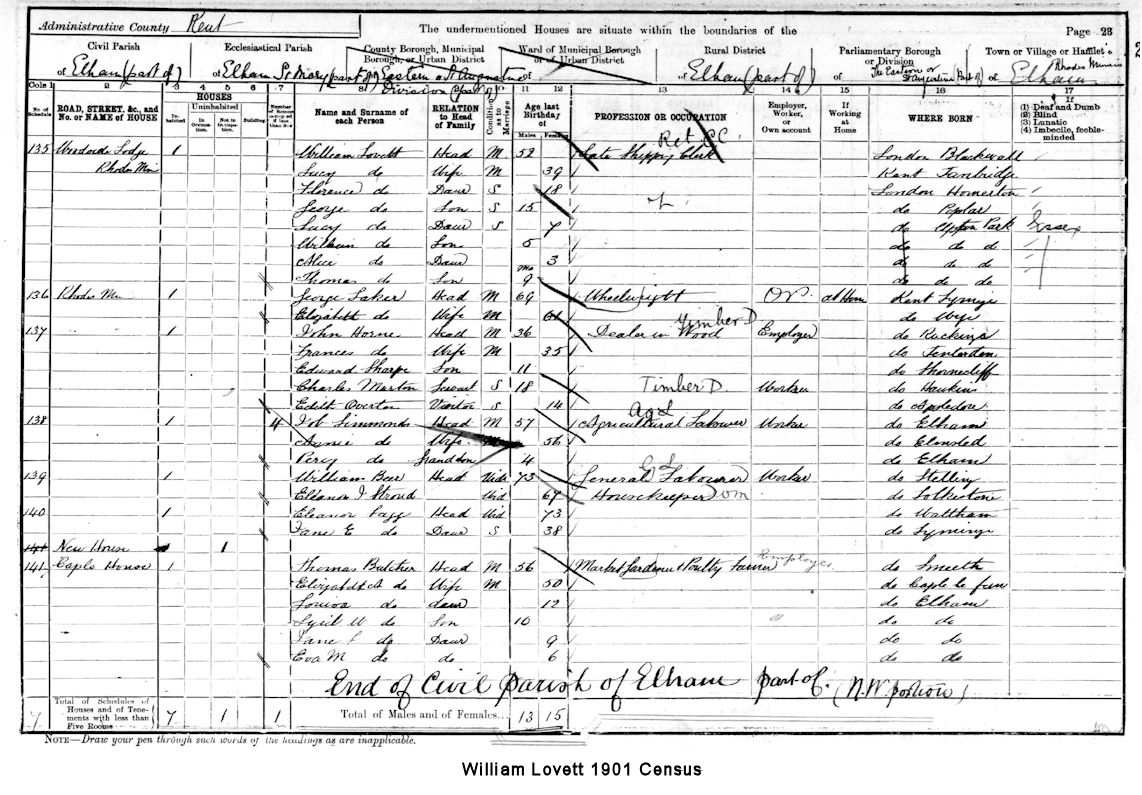 Administrative County Kent
The undermentioned Houses are situate within the boundaries of the
Page 23
Civil Parish
of Elham (part of)
Ecclesiastical Parish
of Elham St Mary (part of)
County Borough, Municipal Borough, or Urban District
Ward of Municipal Borough or of Urban District
of
Rural District
of Elham (part of)
Parliamentary Borough or Division
of
Town or Village or Hamlet
of Elham
Rhodes Minnis
Cols 1 2 3 4 5 6 7 8 9 10 11 12 13 14 15 16 17
No. of Schedule
ROAD, STREET, &c., and No. or NAME of HOUSE
HOUSES
Inhabited
Uninhabited
In Occupation.
Not in Occupation.
Building
Number of
Name and Surname of each Person
RELATION to Head of Family
Condition as to Marriage
Age last Birthday of
Males Females
PROFESSION OR OCCUPATION
Employer, Worker, or Own account
If Working at Home
WHERE BORN
If
(1) Deaf and Dumb
(2) Blind
(3) Lunatic
(4) Imbecile, feeble-minded
Ret. C C
135 Woodside Lodge 1 William Lovett Head M 52 Late Shippg Clerk London Blackwall
Rhodes Min Lucy do Wife M 39 Kent
Florence do Daur S 18 London Homerton
George do Son S 15 do Poplar
Lucy do Daur S 7 do Upton Park Essex
William do Son 5 do do do
Alice do Daur 3 do do do
Thomas do Son mo 9 do do do
136 Rhodes Mn 1 George Laker Head M 69 Wheelwright OA at Home Kent Lyminge
Elizabeth do Wife M 61 do
Timber D
137 1 John Horne Head M 36 Dealer in Wood Employer do Ruckinge
Frances do Wife M 35 do Tenterden
Edward Sharpe Son 11 do
Charles Marton Servant S 18 Timber D. Worker do Hawkinge
Edith Overton Visitor S 14 do Appledore
Ag L
138 1 4 Job Simmonds Head M 57 Agricultural Labourer Worker do Elham
Annie do Wife M 56 do Elmsted
Percy do Grandson 4 do Elham
G L
139 1 William Beer Head Widr 73 General Labourer Worker do Stelling
Eleanor J Stroud Wid 67 Housekeeper do Folkestone
140 1 Eleanor Head Wid 73 do Waltham
Jane E do Daur S 38 do Lyminge
141 New House 1
141 Caple House 1 Thomas Butcher Head M 56 Market Gardener Poultry Farmer Employer do Smeeth
Elizabeth A do Wife M 50 do Caple le fern
Louisa do daur 12 do Elham
W do Son 10 do do
Jane do Daur 9 do do
Eva M do do 6 do do
End of Civil Parish of Elham part of. (N.W portion)
7 Total of Schedules of Houses and of Tenements with less than Five Rooms 7 1 1 Total of Males and of Females... 13 15
NOTE—Draw your pen through such words of the headings as are inapplicable.
William Lovett 1901 Census